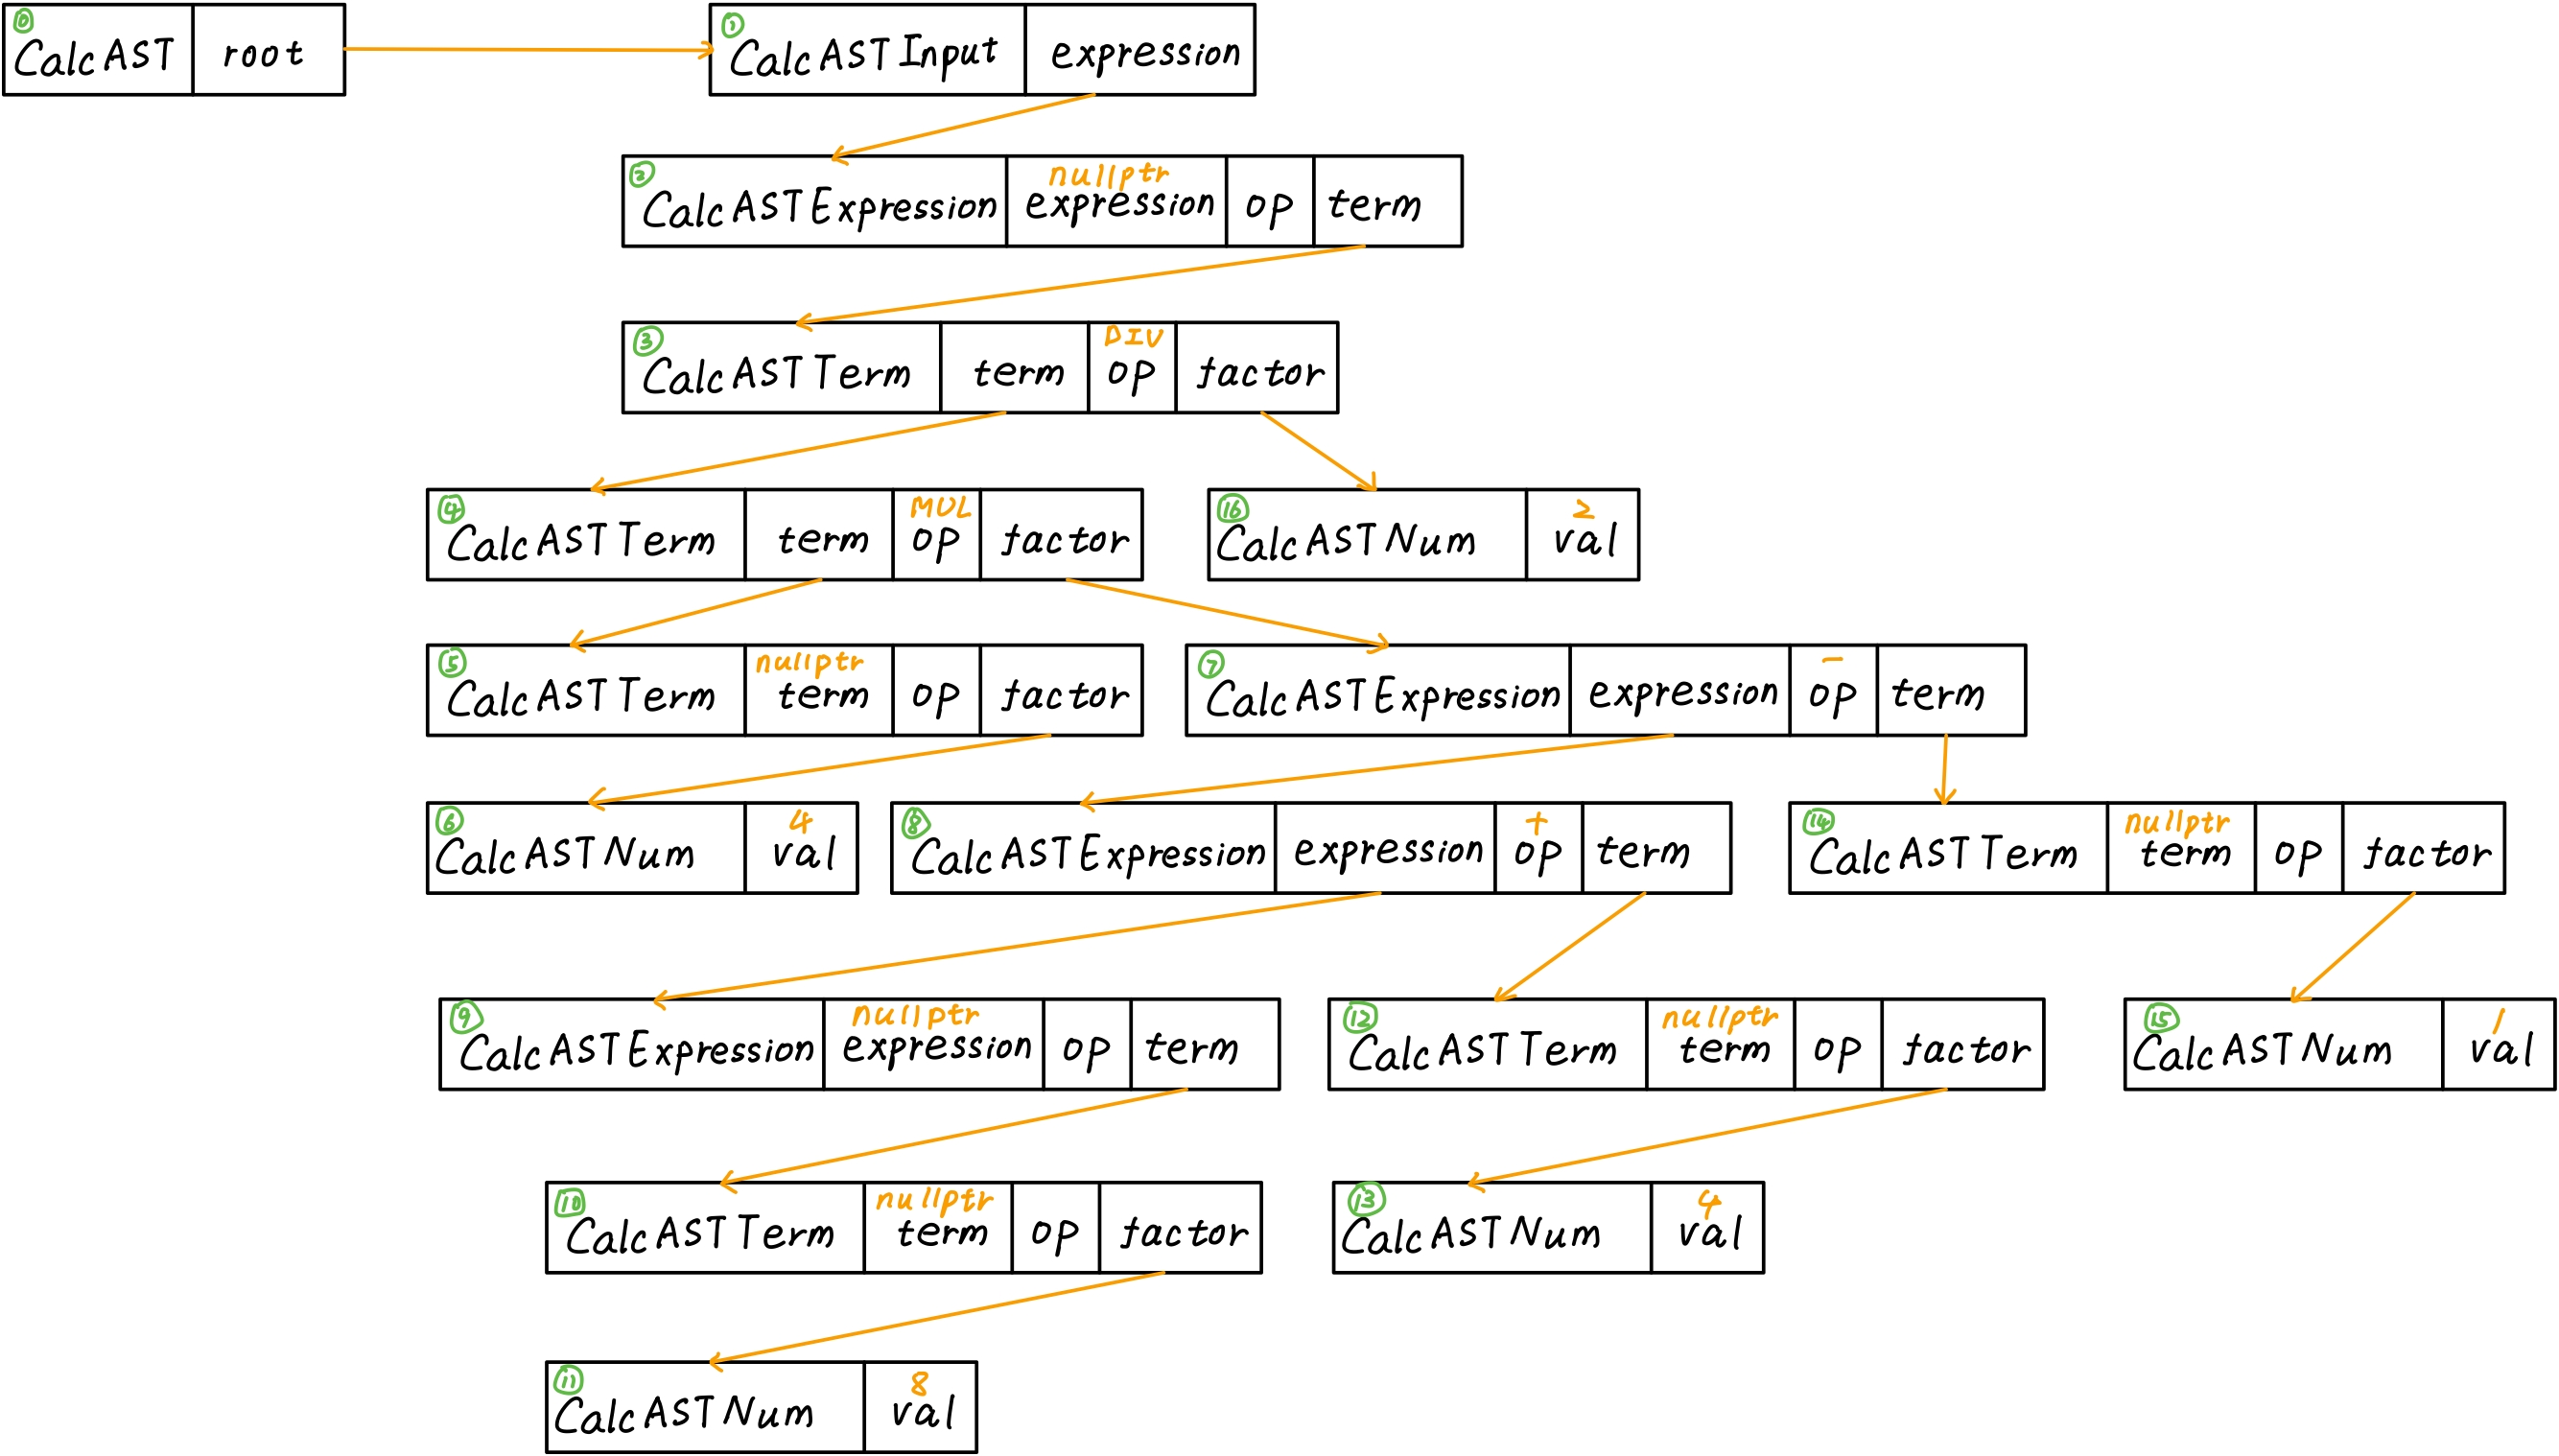 ⓪ CalcAST root
① CalcASTInput expression
② CalcASTExpression nullptr expression op term
③ CalcASTTerm term DIV op factor
④ CalcASTTerm term MUL op factor
⑯ CalcASTNum 2 val
⑤ CalcASTTerm nullptr term op factor
⑦ CalcASTExpression expression - op term
⑥ CalcASTNum 4 val
⑧ CalcASTExpression expression + op term
⑭ CalcASTTerm nullptr term op factor
⑨ CalcASTExpression nullptr expression op term
⑫ CalcASTTerm nullptr term op factor
⑮ CalcASTNum 1 val
⑩ CalcASTTerm nullptr term op factor
⑬ CalcASTNum 4 val
⑪ CalcASTNum 8 val